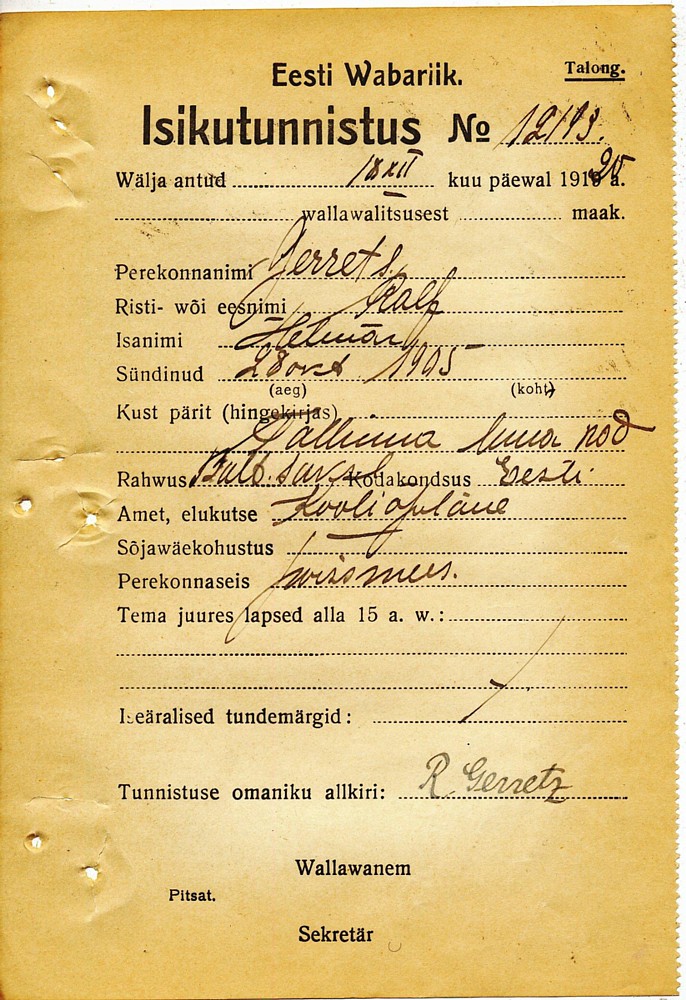 Eesti Wabariik.
Talong.
Isikutunnistus № 12193.
Wälja antud 18 XII kuu päewal 1920 a.
wallawalitsusest maak.
Perekonnanimi Gerrets
Risti- wõi eesnimi Ralf
Isanimi Helmar
Sündinud 28 okt 1905
(aeg) (koht)
Kust pärit (hingekirjas)
Tallinna linna kod
Rahwus Balt. saksl Kodakondsus Eesti
Amet, elukutse Kooliõpilane
Sõjawäekohustus
Perekonnaseis poissmees.
Tema juures lapsed alla 15 a. w.:
Iseäralised tundemärgid:
Tunnistuse omaniku allkiri: R. Gerretz
Wallawanem
Pitsat.
Sekretär